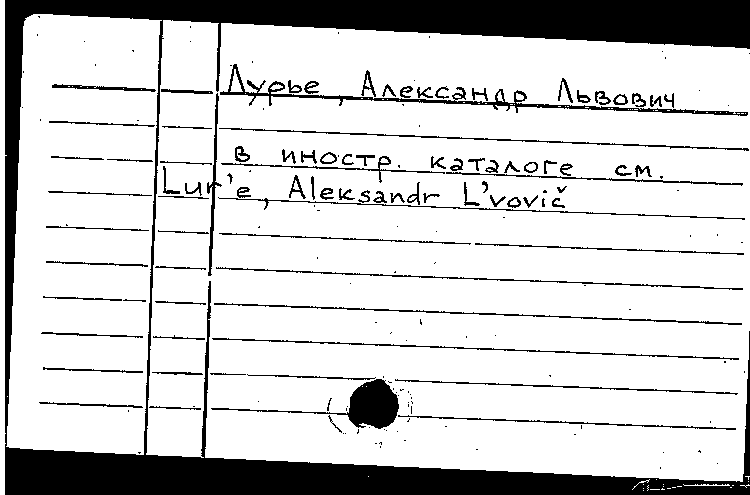 Лурье, Александр Львович
в иностр. каталоге см.
Lur'e, Aleksandr L'vovič